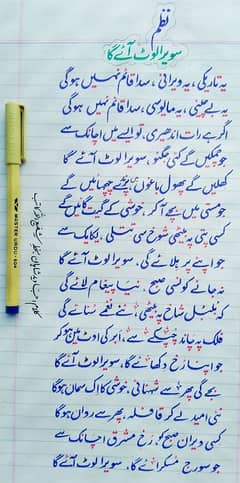 نظم
سویرا لوٹ آئے گا
یہ تاریکی، یہ ویرانی، سدا قائم نہیں ہوگی
یہ بے چینی، یہ مایوسی، سدا قائم نہیں ہوگی
اگر ہے رات اندھیری، تو ایسے میں اچانک سے
جو چمکیں گے کئی جگنو، سویرا لوٹ آئے گا
کھلیں گے پھول باغوں میں پرندے چہچہائیں گے
جو مستی میں بچے آکر، خوشی کے گیت گائیں گے
کسی پتی پہ بیٹھی شوخ سی تتلی، یکایک سے
جو اپنے پر ہلائے گی، سویرا لوٹ آئے گا
نہ جانے کونسی صبح، نیا پیغام لائے گی
کہ بلبل شاخ پہ بیٹھی، نئے نغمے سنائے گی
فلک پہ چاند چپکے سے، ابر کی اوٹ میں ہو کر
جو اپنا رخ دکھائے گا، سویرا لوٹ آئے گا
بجے گی پھر سے شہنائی، خوشی کا اک سماں ہوگا
نئی امید لے کر قافلہ، پھر سے رواں ہوگا
کسی ویران صبح کو، رخ مشرق اچانک سے
جو سورج مسکرائے گا، سویرا لوٹ آئے گا
MASTER URDU-604
کلام: